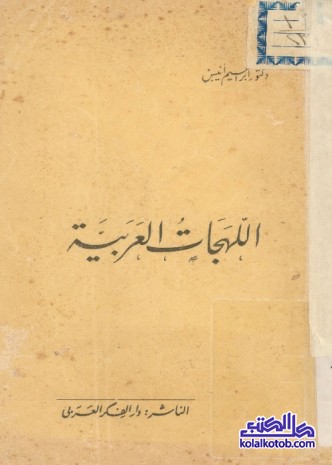 دكتور ابراهيم أنيس
اللهجات العربية
الناشر: دار الفكر العربى
كل الكتب
kolalkotob.com